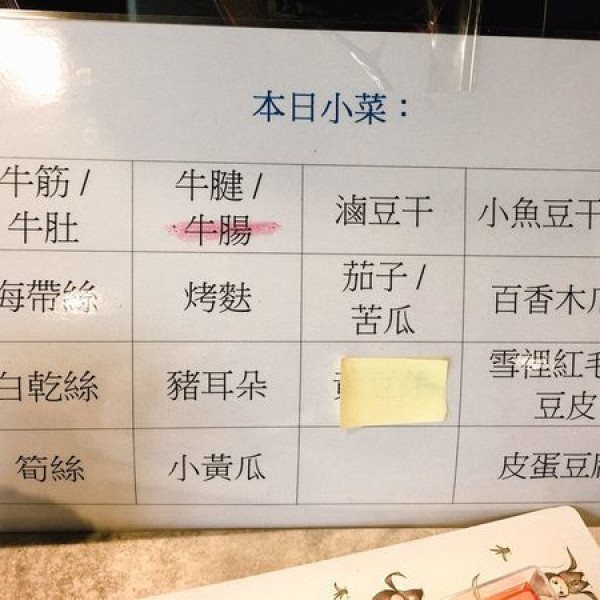 本日小菜：
牛筋 /
牛肚
牛腱 /
牛腸
滷豆干
小魚豆干
海帶絲
烤麩
茄子 /
苦瓜
百香木瓜
白乾絲
豬耳朵
雪裡紅毛
豆皮
筍絲
小黃瓜
皮蛋豆腐